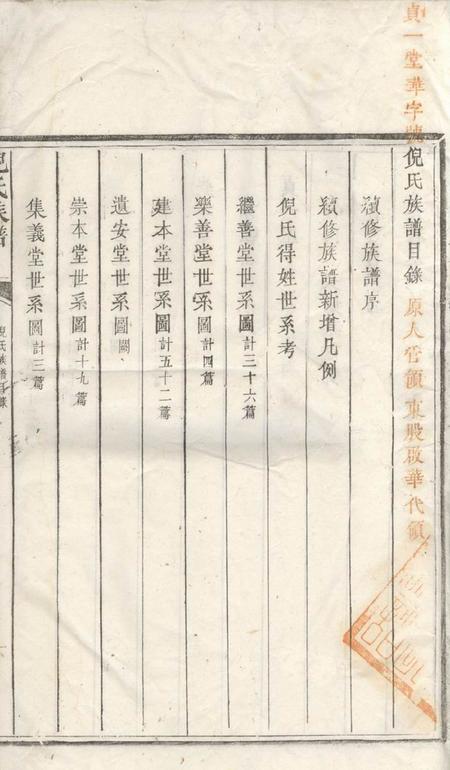 貞一堂華字號
倪氏族譜目錄
原人管領東股啟華代領
續修族譜序
續修族譜新增凡例
倪氏得姓世系考
繼善堂世系圖計三十六篇
樂善堂世系圖計四篇
建本堂世系圖計五十二篇
遺安堂世系圖闕
崇本堂世系圖計十九篇
集義堂世系圖計三篇
倪氏族譜
倪氏族譜目錄